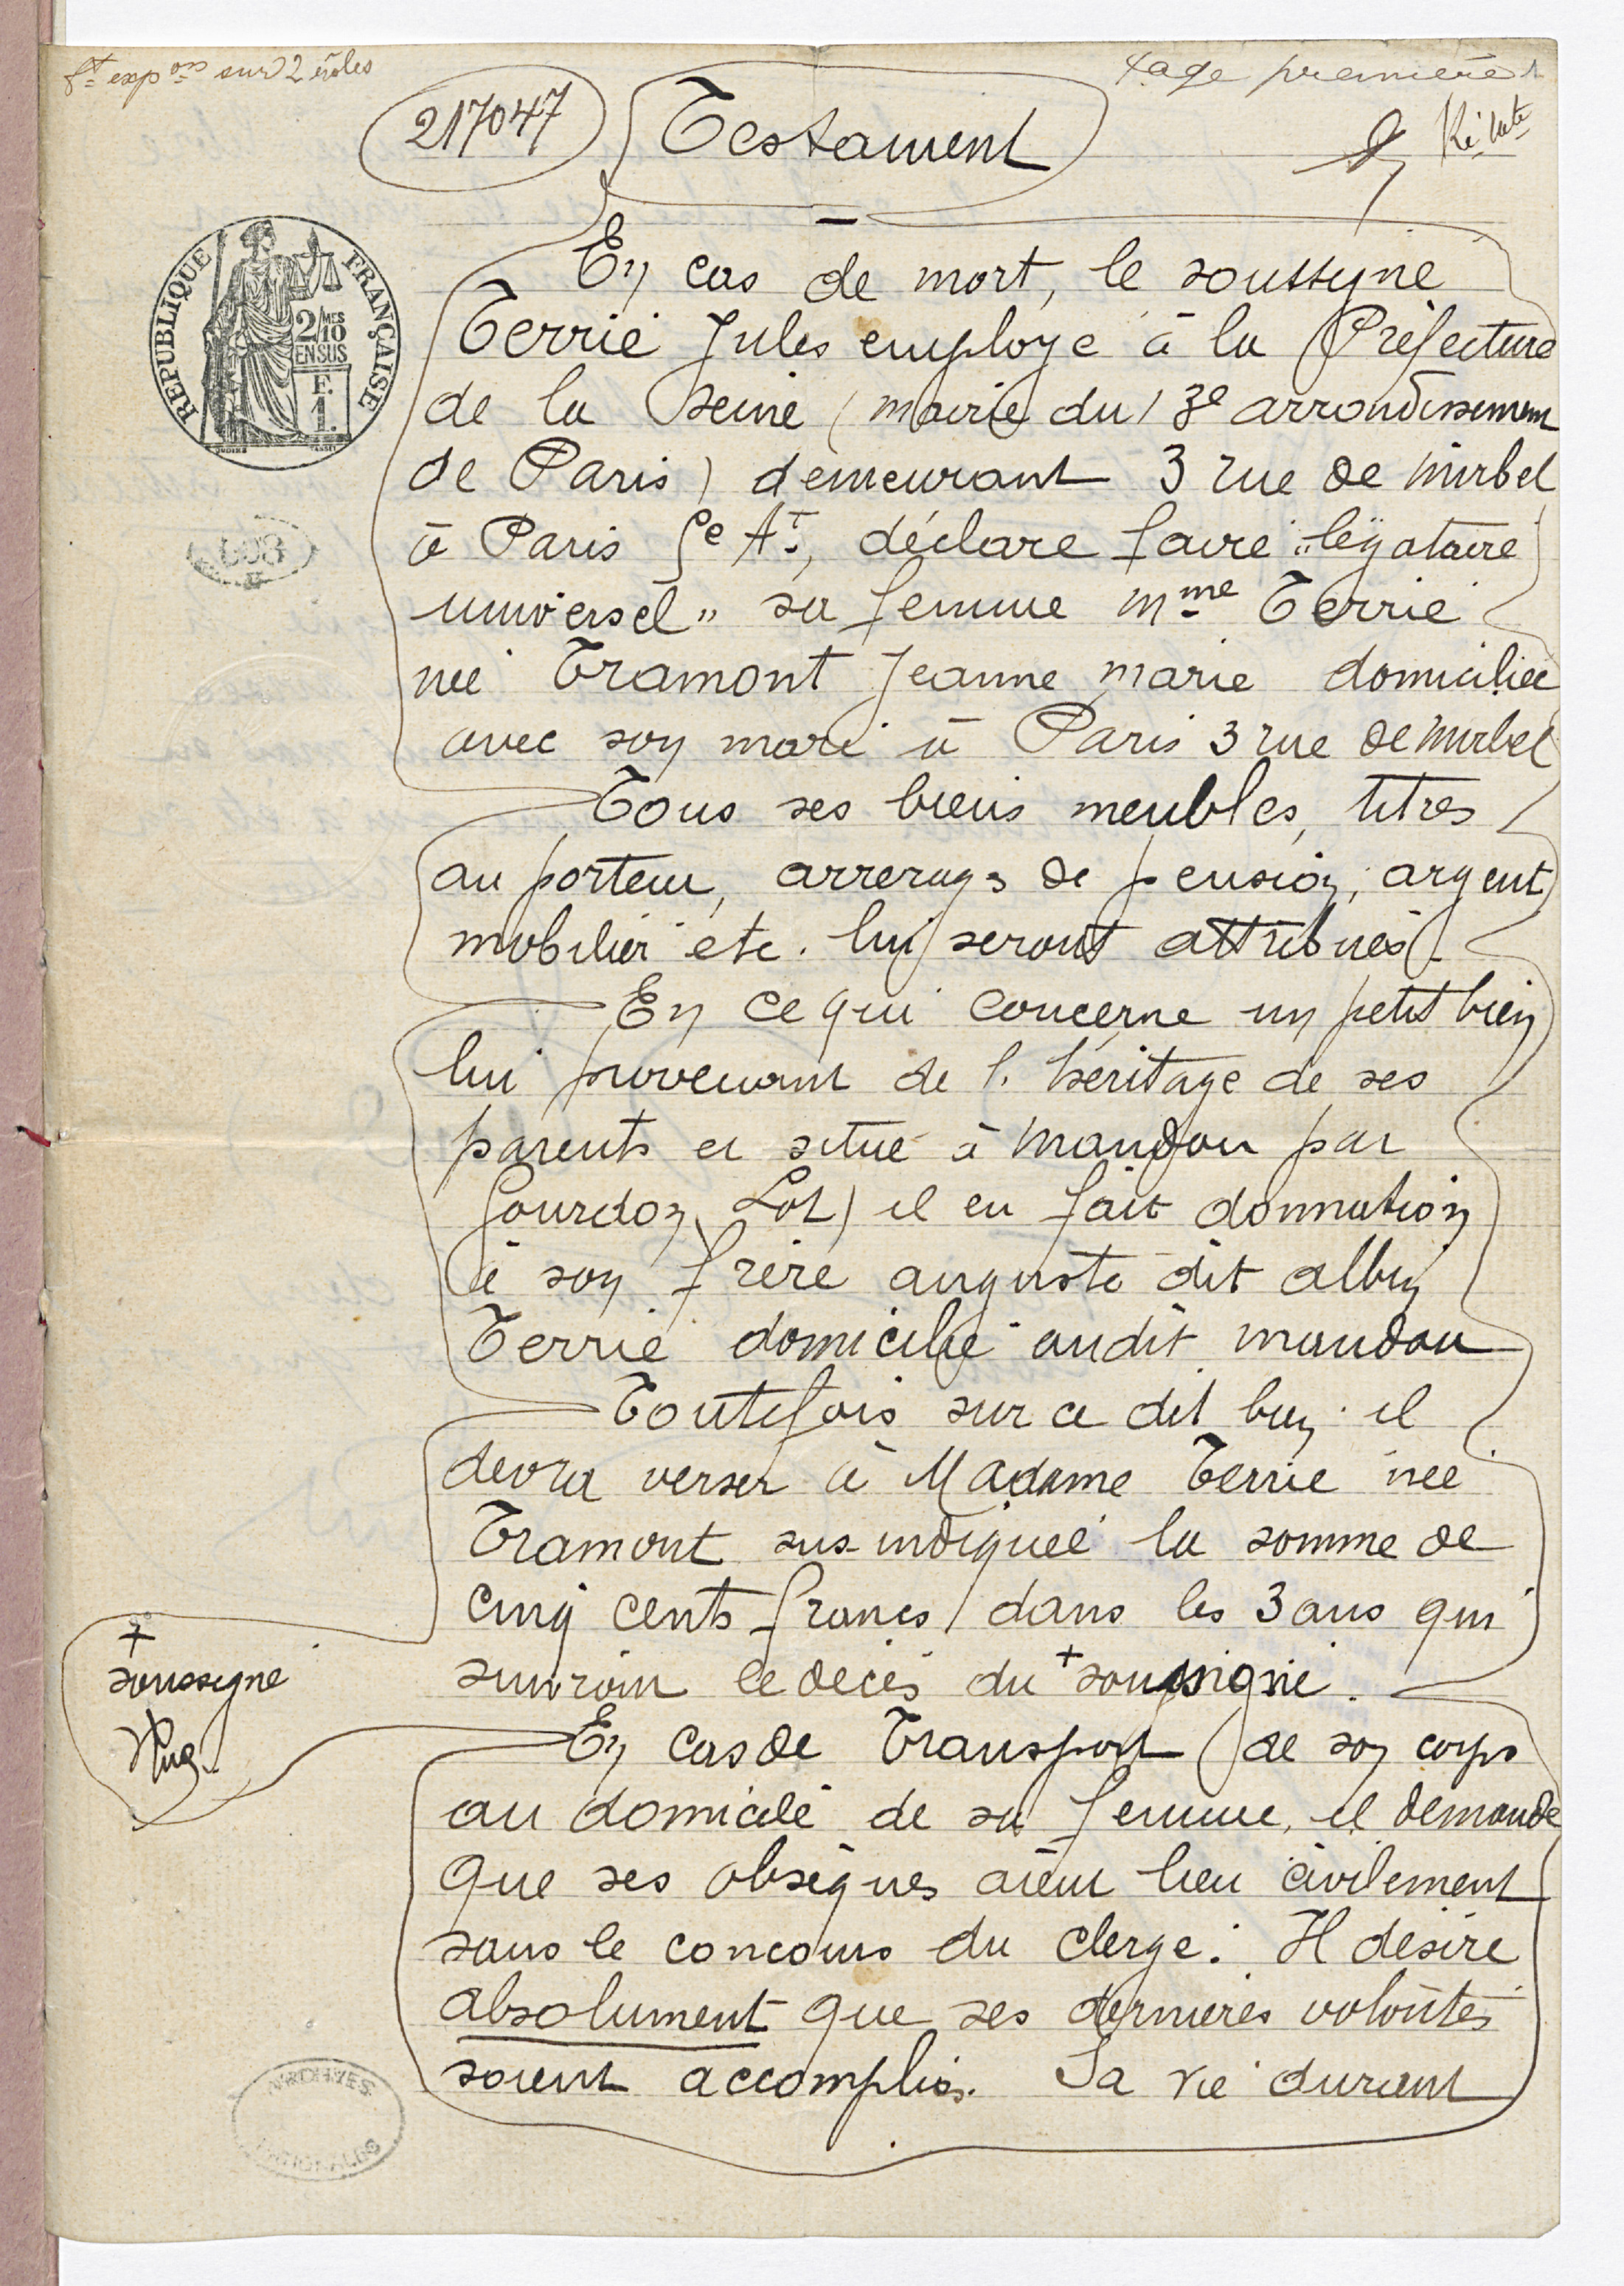 ft expons sur 2 rôles
Page première
217047
Testament
RÉPUBLIQUE FRANÇAISE
2/10 MES
EN SUS
F.
1.
En cas de mort, le soussigné
Terrié Jules employé à la Préfecture
de la Seine (mairie du 13e arrondissement
de Paris) demeurant 3 rue de mirbel
à Paris 5e At, déclare faire "légataire
universel" sa femme mme Terrié
née Tramont Jeanne marie domiciliée
avec son mari à Paris 3 rue de mirbel
Tous ses biens meubles, titres
au porteur, arrerages de pension, argent
mobilier etc. lui seront attribués.
En ce qui concerne un petit bien
lui provenant de l'héritage de ses
parents et situé à Mandou par
Gourdon, Lot) il en fait donnation
à son frère auguste dit albin
Terrié domicilié audit mandou
Toutefois sur ce dit bien il
devra verser à Madame Terrié née
Tramont sus-indiquée la somme de
cinq cents francs dans les 3 ans qui
suivront le décès du + soussigné.
+
soussigné
En cas de Transport de son corps
au domicile de sa femme, il demande
que ses obsèques aient lieu civilement
sans le concours du clergé. Il désire
absolument que ses dernières volontés
soient accomplies. Sa vie durant
ARCHIVES
NATIONALES